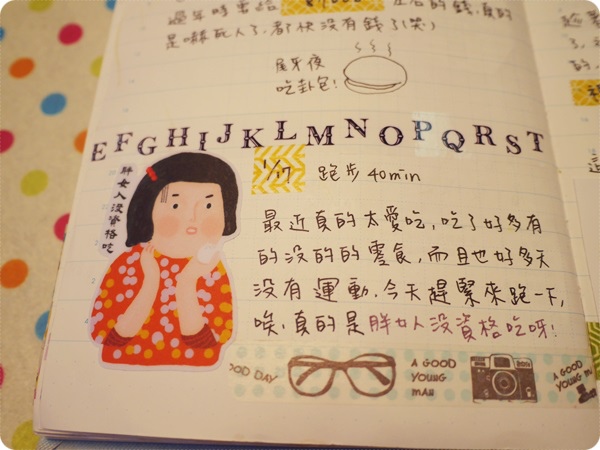 過年時要給
左右的錢,真的
是嚇死人了,都快沒有錢了(笑)
尾牙夜
吃卦包!
EFGHIJKLMNOPQRST
胖女人沒資格吃
1/17 跑步 40min
最近真的太愛吃,吃了好多有
的沒的的零食,而且也好多天
沒有運動.今天趕緊來跑一下,
唉!真的是胖女人沒資格吃呀!
OOD DAY
A GOOD
YOUNG
MAN
A GOOD
YOUNG